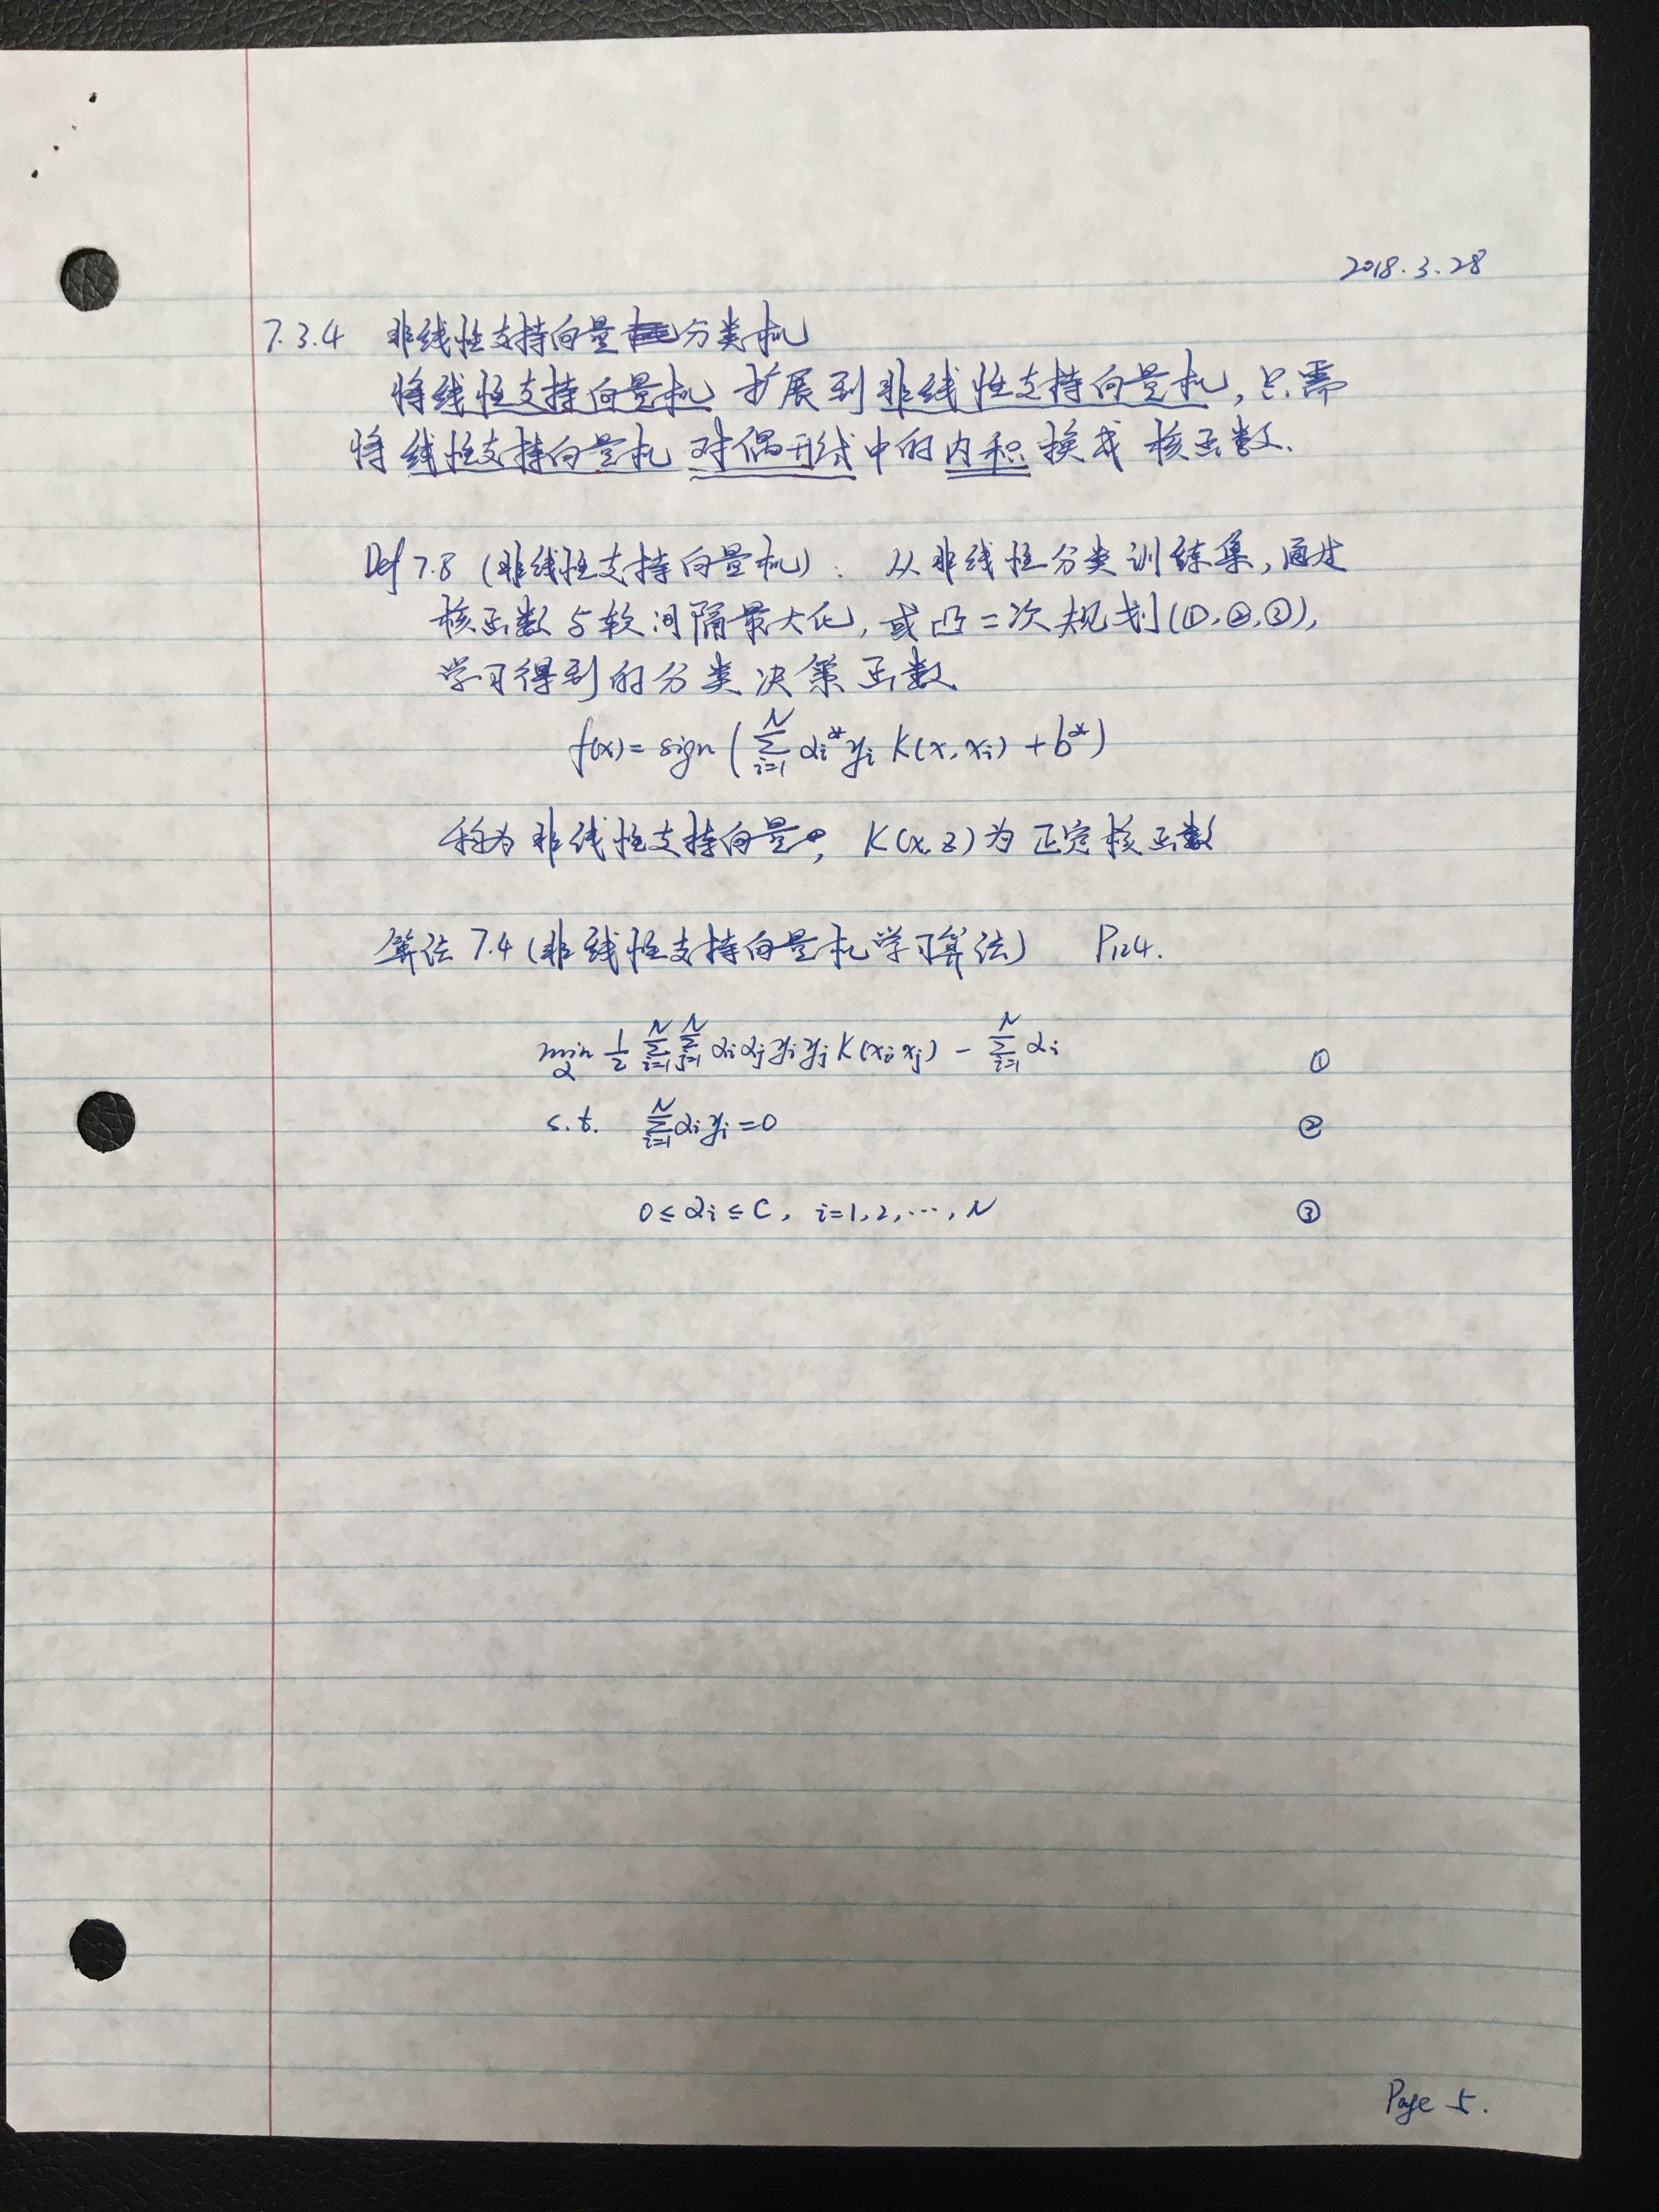 2018.3.28
7.3.4 非线性支持向量分类机
将线性支持向量机 扩展到非线性支持向量机, 只需
将线性支持向量机 对偶形式中的内积 换成 核函数.
Def 7.8 (非线性支持向量机). 从非线性分类训练集, 通过
核函数与软间隔最大化, 或凸二次规划(①,②,③),
学习得到的分类决策函数
f(x) = sign ( ∑_{i=1}^{N} α_i^* y_i K(x, x_i) + b^* )
称为 非线性支持向量, K(x, z) 为 正定核函数
算法 7.4 (非线性支持向量机学习算法) P124.
min_α 1/2 ∑_{i=1}^{N} ∑_{j=1}^{N} α_i α_j y_i y_j K(x_i, x_j) - ∑_{i=1}^{N} α_i ①
s.t. ∑_{i=1}^{N} α_i y_i = 0 ②
0 ≤ α_i ≤ C, i=1,2,⋯,N ③
Page 5.